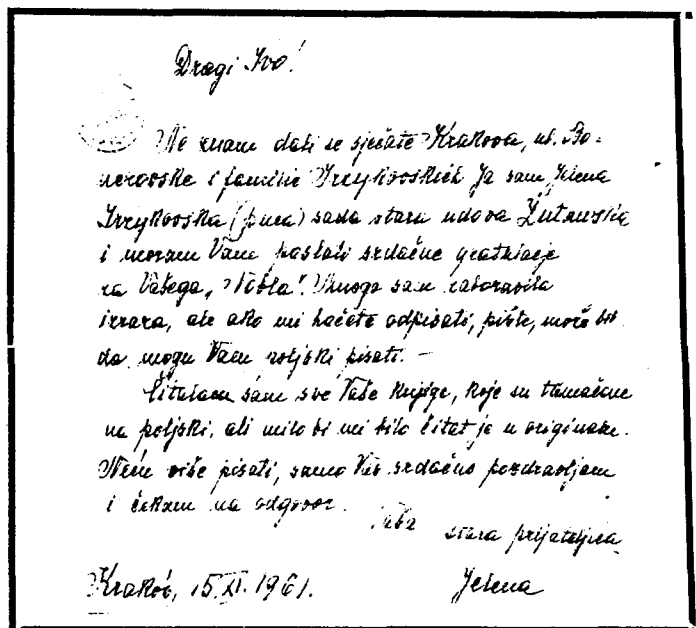 Dragi Ivo!
Ne znam dali se sječate Krakova, ul. Bo-
nerovske i familie Irzykovskich Ja sam Jelena
Irzykovska (puca) sada stara udova Żuławska
i moram Vam poslati srdačne gratulacje
za Vašega „Nobla". Mnogo sam zaboravila
izraza, ale ako mi hačete odpisati, pište, može bit
da mogu Vam poljski pisati. —
Čitalam sam sve Vaše knjige, koje su tlumačene
na poljski, ali milo bi mi bilo čitat je u originale.
Neču više pisati, samo Vas srdačno pozdravljam
i čekam na odgovor.
Vaša stara prijateljica
Jelena
Krakov, 15.XI.1961.